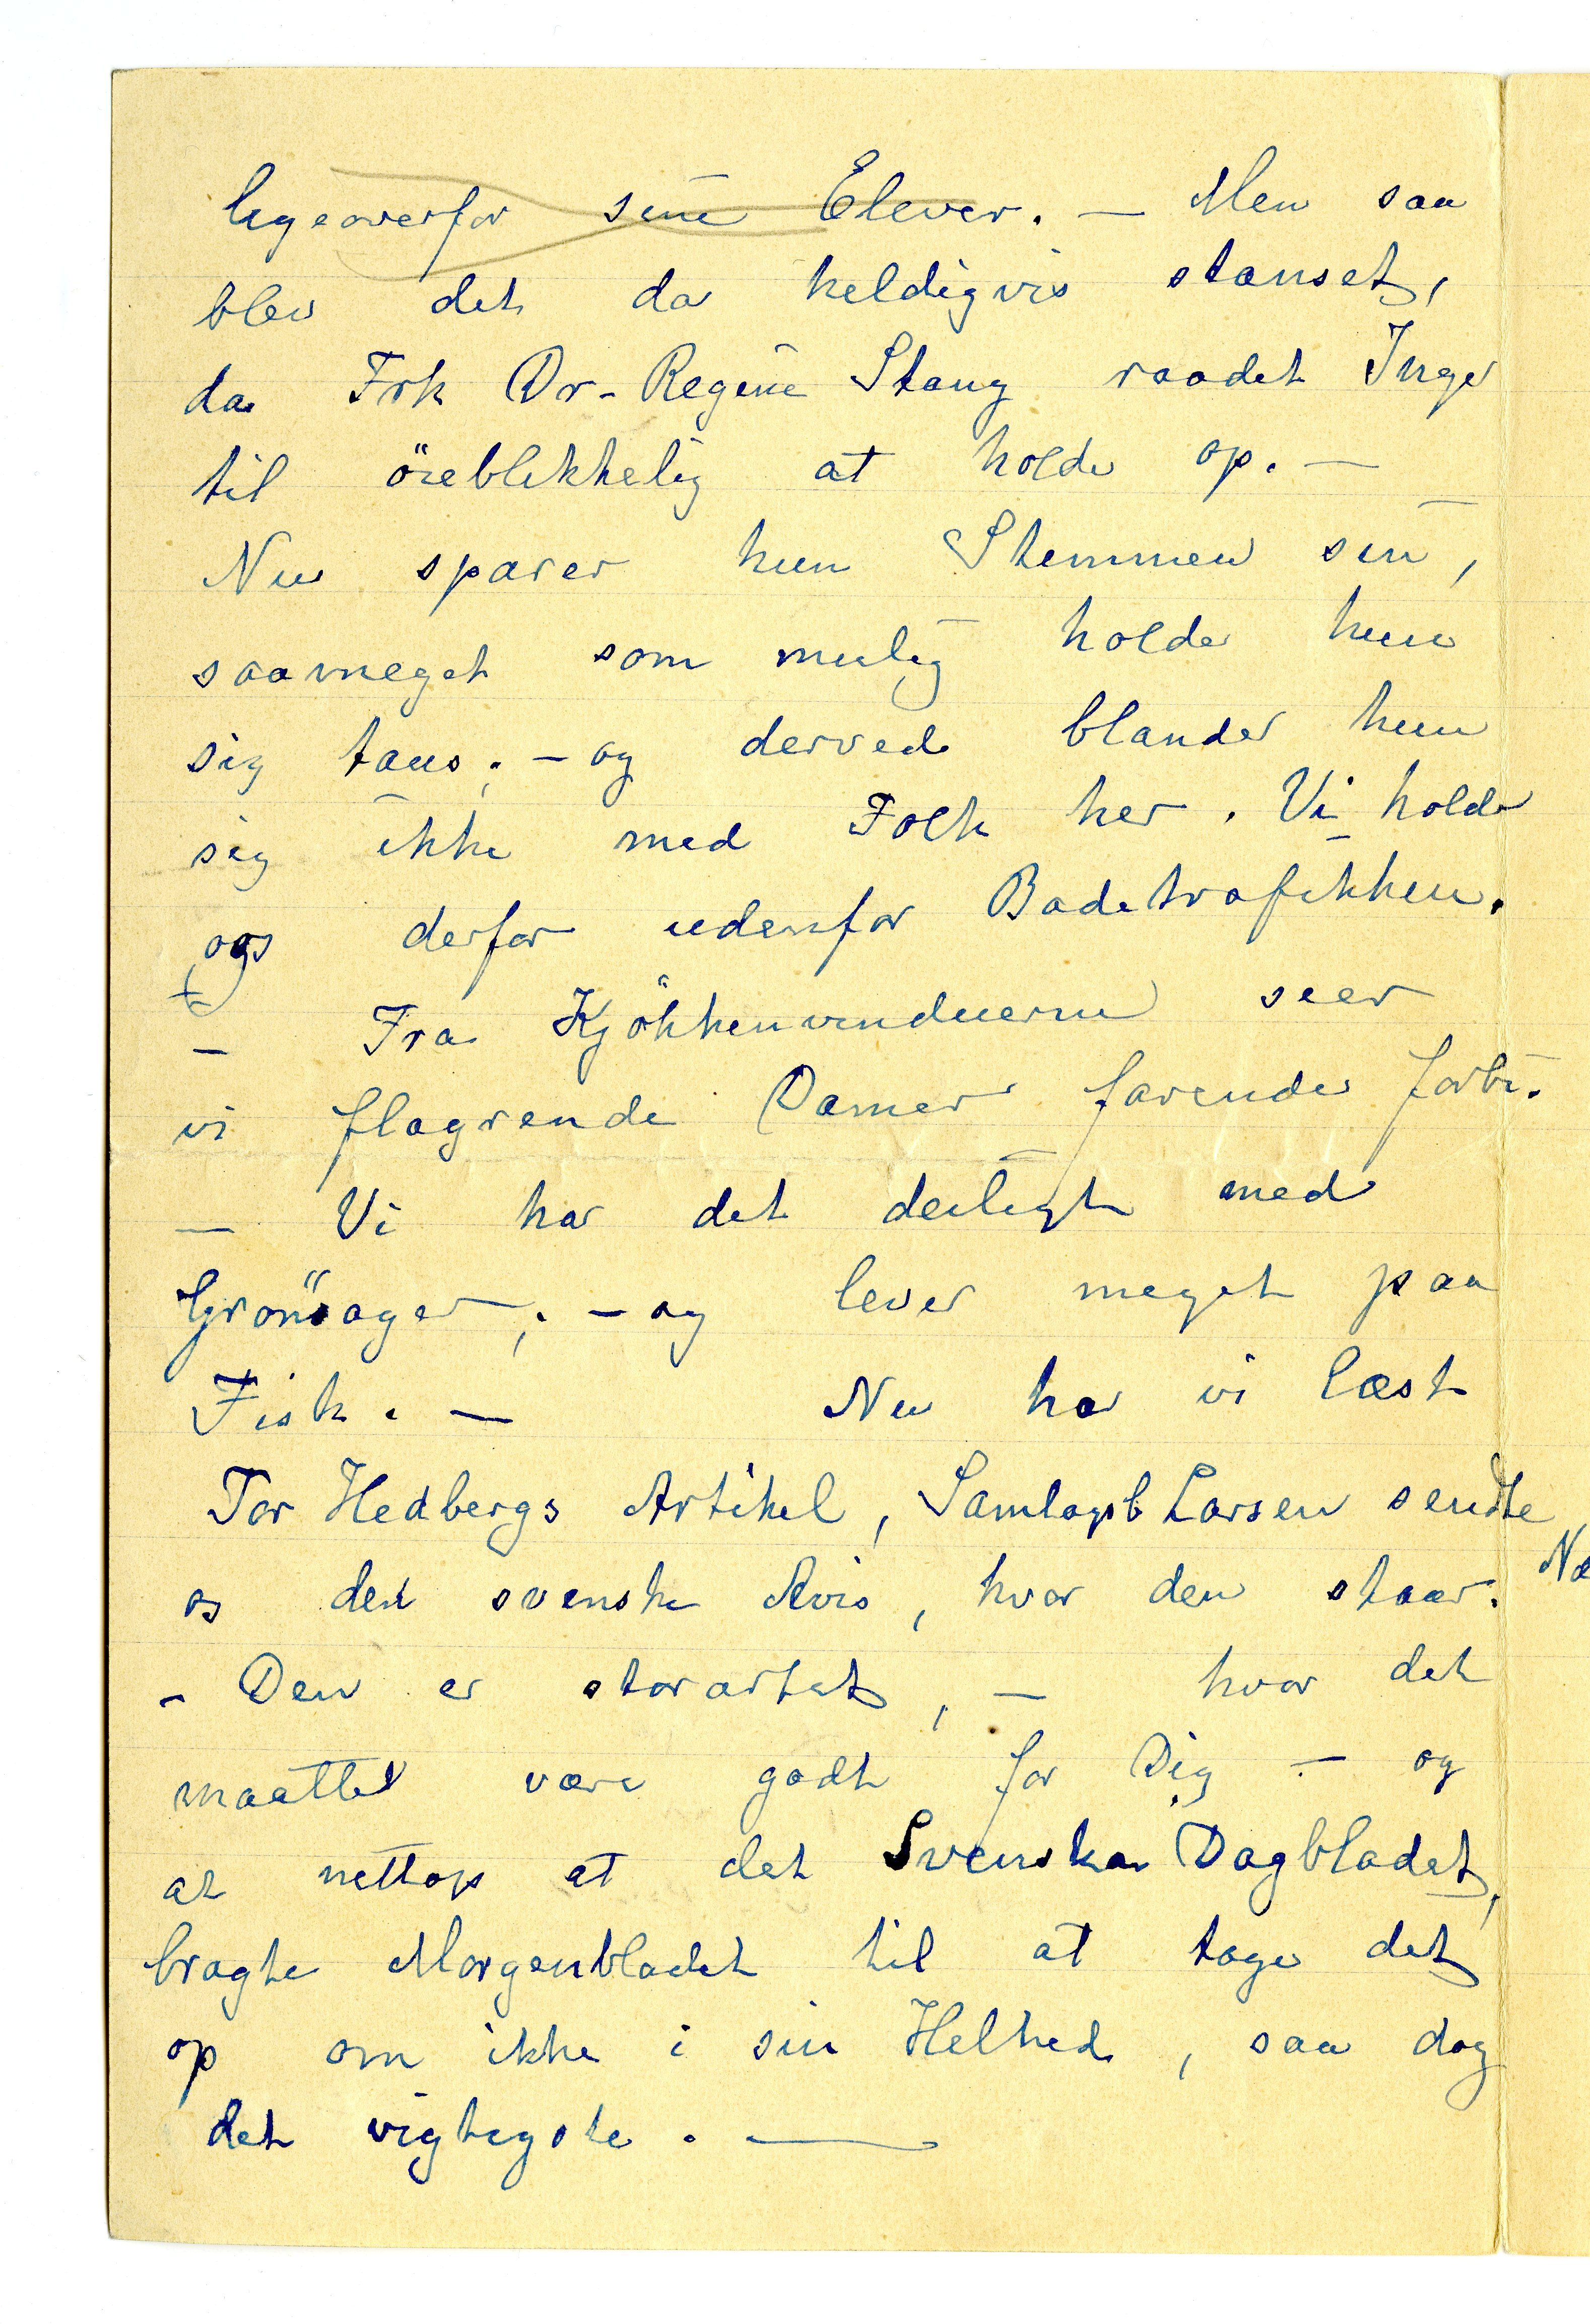 ligeoverfor sine Elever. — Men saa
blev det da heldigvis stanset,
da Frk Dr. Regine Stang raadet Inger
til öieblikkelig at holde op. —
Nu sparer hun Stemmen sin,
saameget som mulig holder hun
sig taus; — og derved blander hun
sig ikke med Folk her. Vi holder
os derfor udenfor Badetrafikken.
— Fra Kjökkenvinduerne seer
vi flagrende Damer farende forbi.
— Vi har det deiligt med
Grönsager; — og lever meget paa
Fisk. — Nu har vi læst
Tor Hedbergs Artikel, Samlagsb Larsen sendte
os den svenske Avis, hvor den staar.
- Den er storartet, — hvor det
maatte være godt for Dig — og
at nettop at det Svenska Dagbladet,
bragte Morgenbladet til at tage det
op om ikke i sin Helhed, saa dog
det vigtigste. —